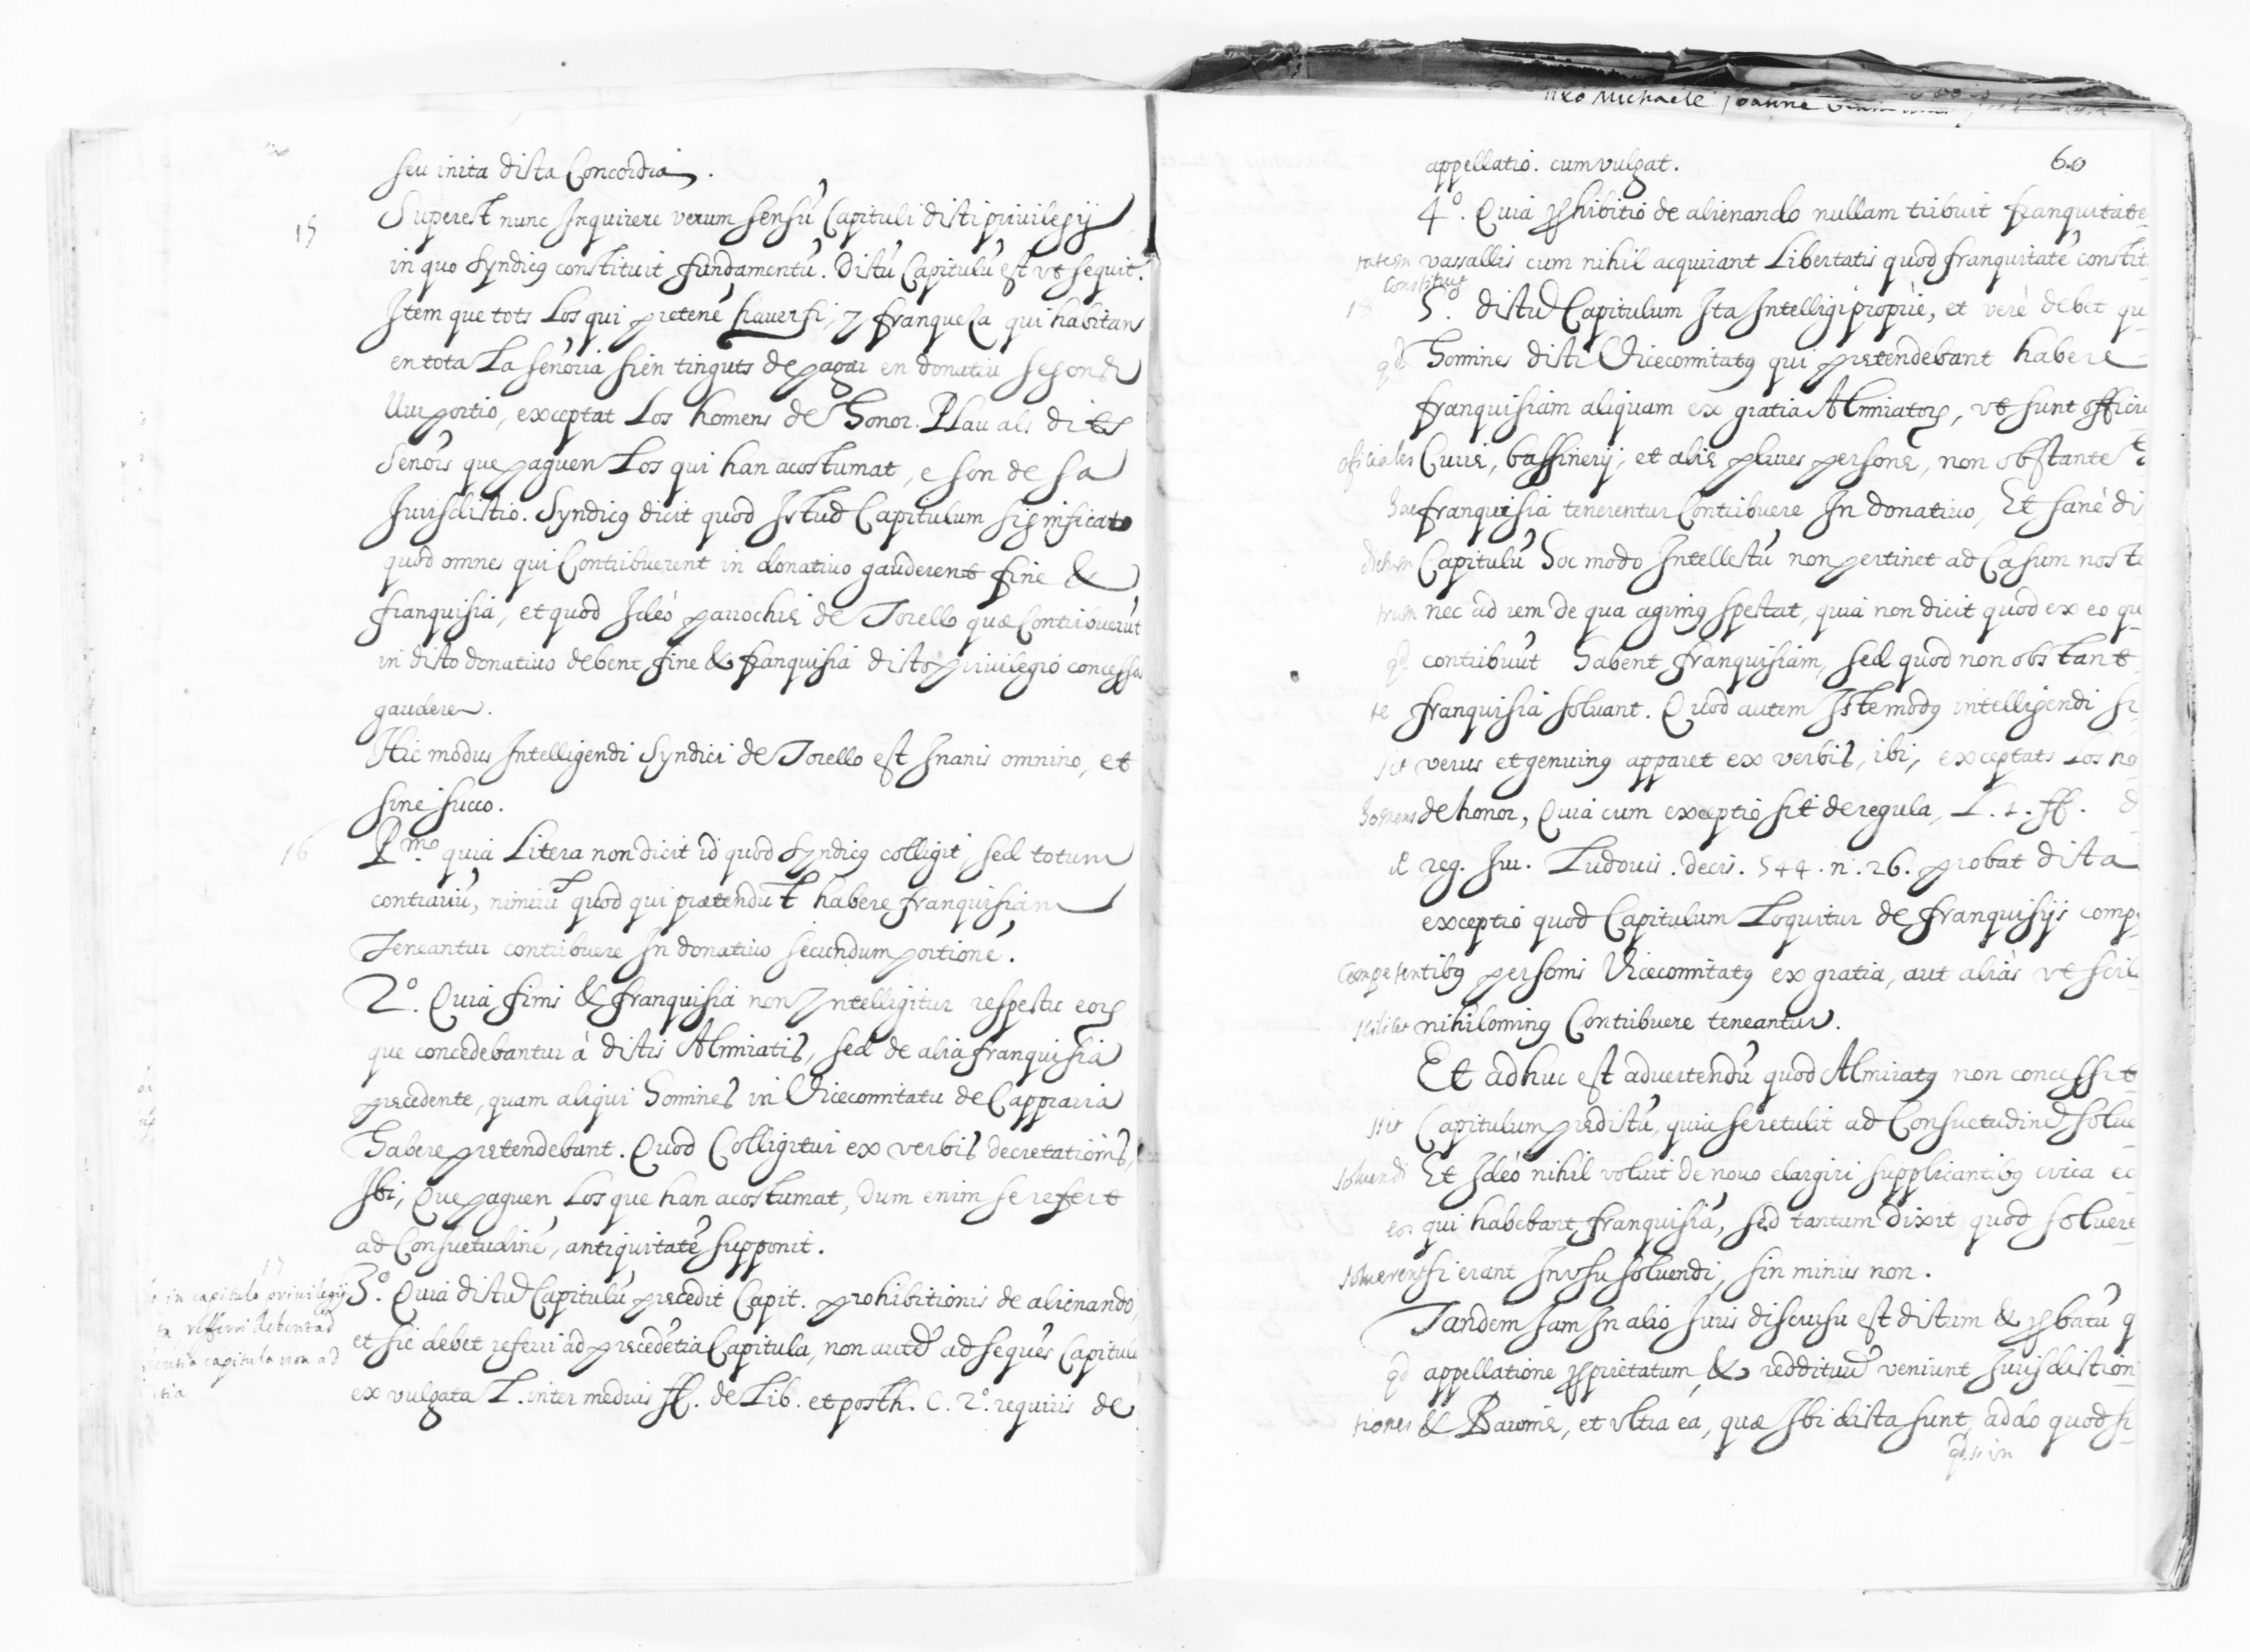 seu inita dicta Concordia.
15
Superest nunc Inquirere verum sensũ Capituli dicti priuilegij
in quo syndicꝰ constituit fundamentũ. Dictũ Capitulũ est vt sequit.
Item que tots Los qui pretenẽ hauer fi, y franquesa qui habitans
en tota La señoria sien tinguts de pagar en donatiu segons
Llur portio, exceptat Los homens de Honor. Plau als dits
Señors que paguen Los qui han acostumat, e son de sa
Jurisdictio. Syndicꝰ dicit quod Istud Capitulum significat
quod omnes qui Contribuerent in donatiuo gauderent fine &
franquisia, et quod Ideò parrochię de Torello quæ Contribuerũt
in dicto donatiuo debent fine & franquisia dicto priuilegio concessa
gaudere.
Hic modus Intelligendi Syndici de Torello est Inanis omnino, et
sine succo.
16
Pmo. quia Litera non dicit id quod syndicꝰ colligit, sed totum
contrariũ, nimirũ quod qui prætendũt habere franquisiam
Teneantur contribuere In donatiuo secundum portionẽ.
2º. Quia finis & franquisia non Intelligitur respectu eorꝝ
que concedebantur à dictis Almiratis, sed de alia franquisia
pręcedente, quam aliqui Homines in Vicecomitatu de Cappraria
Habere pretendebant. Quod Colligitur ex verbis decretationis,
Ibi, Que paguen Los que han acostumat, dum enim se refert
ad Consuetudinẽ, antiquitatẽ supponit.
17
3º. Quia dictũ Capitulũ pręcedit Capit. prohibitionis de alienando,
in capitulo priuilegij
refferri debent ad
capitula non ad
et sic debet referri ad pręcedẽtia Capitula, non autẽ ad sequẽs Capitulũ
ex vulgata L. inter mediuis ff. de Lib. et posth. C. 2º. requiris de
60
appellatio. cum vulgat.
4º. Quia ꝓhibitio de alienando nullam tribuit franquitate
tatem vassallis cum nihil acquirant Libertatis quod franquitatẽ constit
constituit
18
5º. dictũ Capitulum Ita Intelligi propriè, et verè debet qu
qd Homines dicti Vicecomitatꝰ qui prętendebant habere
franquisiam aliquam ex gratia Almiatorꝝ, vt sunt officia
officiales Curię, bassinerij, et alię plures personę, non obstante
hac franquisia tenerentur Contribuere In donatiuo, Et sanè di
dictum Capitulũ Hoc modo Intellectũ non pertinet ad Casum nost
trum nec ad rem de qua agimꝰ spectat, quia non dicit quod ex eo qu
qd contribuũt Habent franquisiam, sed quod non obstant
te franquisia soluant. Quod autem Iste modꝰ intelligendi si
sit verus et genuinꝰ apparet ex verbis, ibi, exceptats Los ho
homens de honor, Quia cum exceptio sit de regula, L. 1. ff. d
de reg. Iur. Ludouis. decis. 544. n. 26. probat dicta
exceptio quod Capitulum Loquitur de franquisijs comp
Competentibꝰ personis Vicecomitatꝰ ex gratia, aut aliàs vt scil
scilicet nihilominꝰ Contribuere teneantur.
Et adhuc est aduertendũ quod Almiratꝰ non concessit
ssit Capitulum prędictũ, quia se retulit ad Consuetudinẽ solue
soluendi Et Ideò nihil voluit de nouo elargiri supplicantibꝰ circa eo
eos qui habebant franquisiã, sed tantum dixit quod soluere
soluerent si erant In vsu soluendi, sin minus non.
Tandem Iam In alio Iuris discursu est dictum & ꝓbatũ q
qd appellatione ꝓprietatum, & reddituũ veniunt Jurisdiction
tiones & Baronię, et vltra ea, quæ Ibi dicta sunt, addo quod si
qd si in